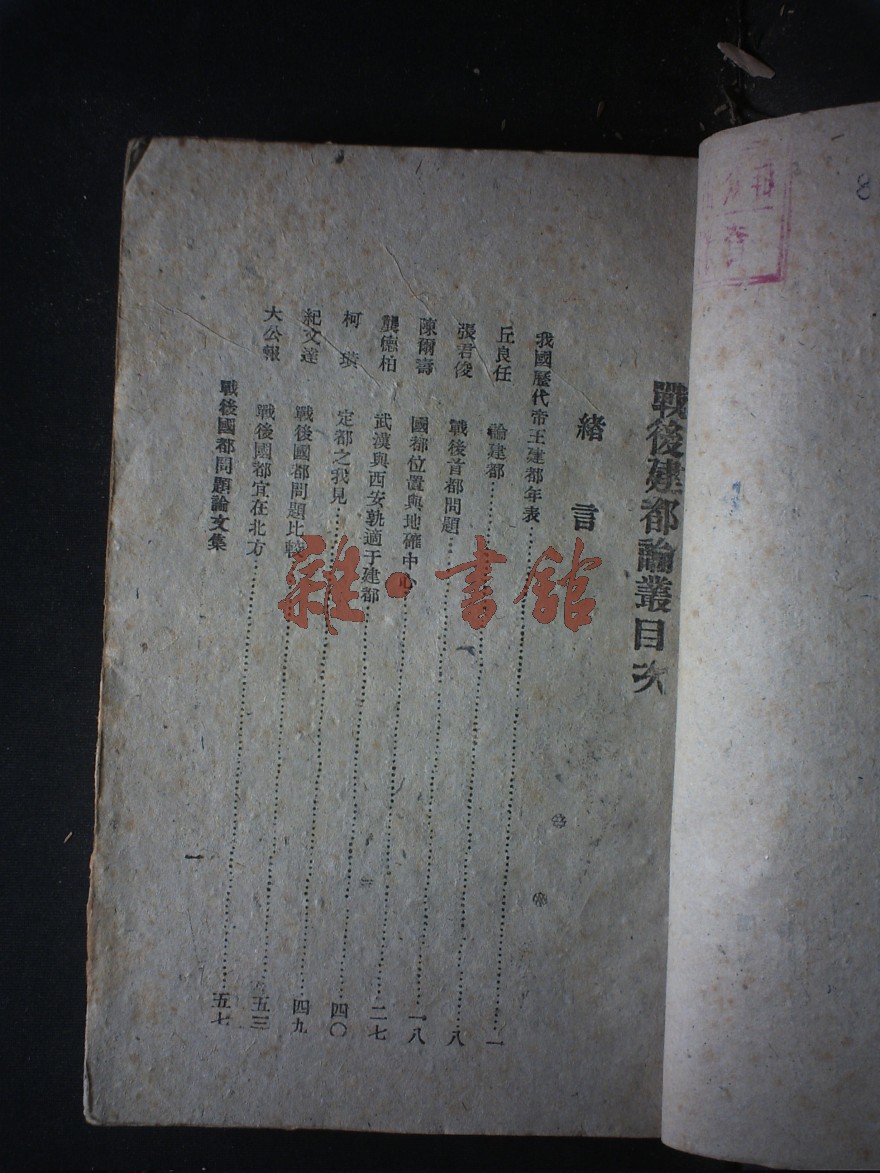 戰後建都論叢目次
緒言
我國歷代帝王建都年表……一
丘良任 論建都……八
張君俊 戰後音都問題……一八
陳爾壽 國都位置與地確中心……二七
龔德柏 武漢與西安孰適于建都……四〇
柯璜 定都之我見……四九
紀文達 戰後國都問題比較……五三
大公報 戰後國都宜在北方……五七
戰後國都問題論文集
一
雜·書館
8